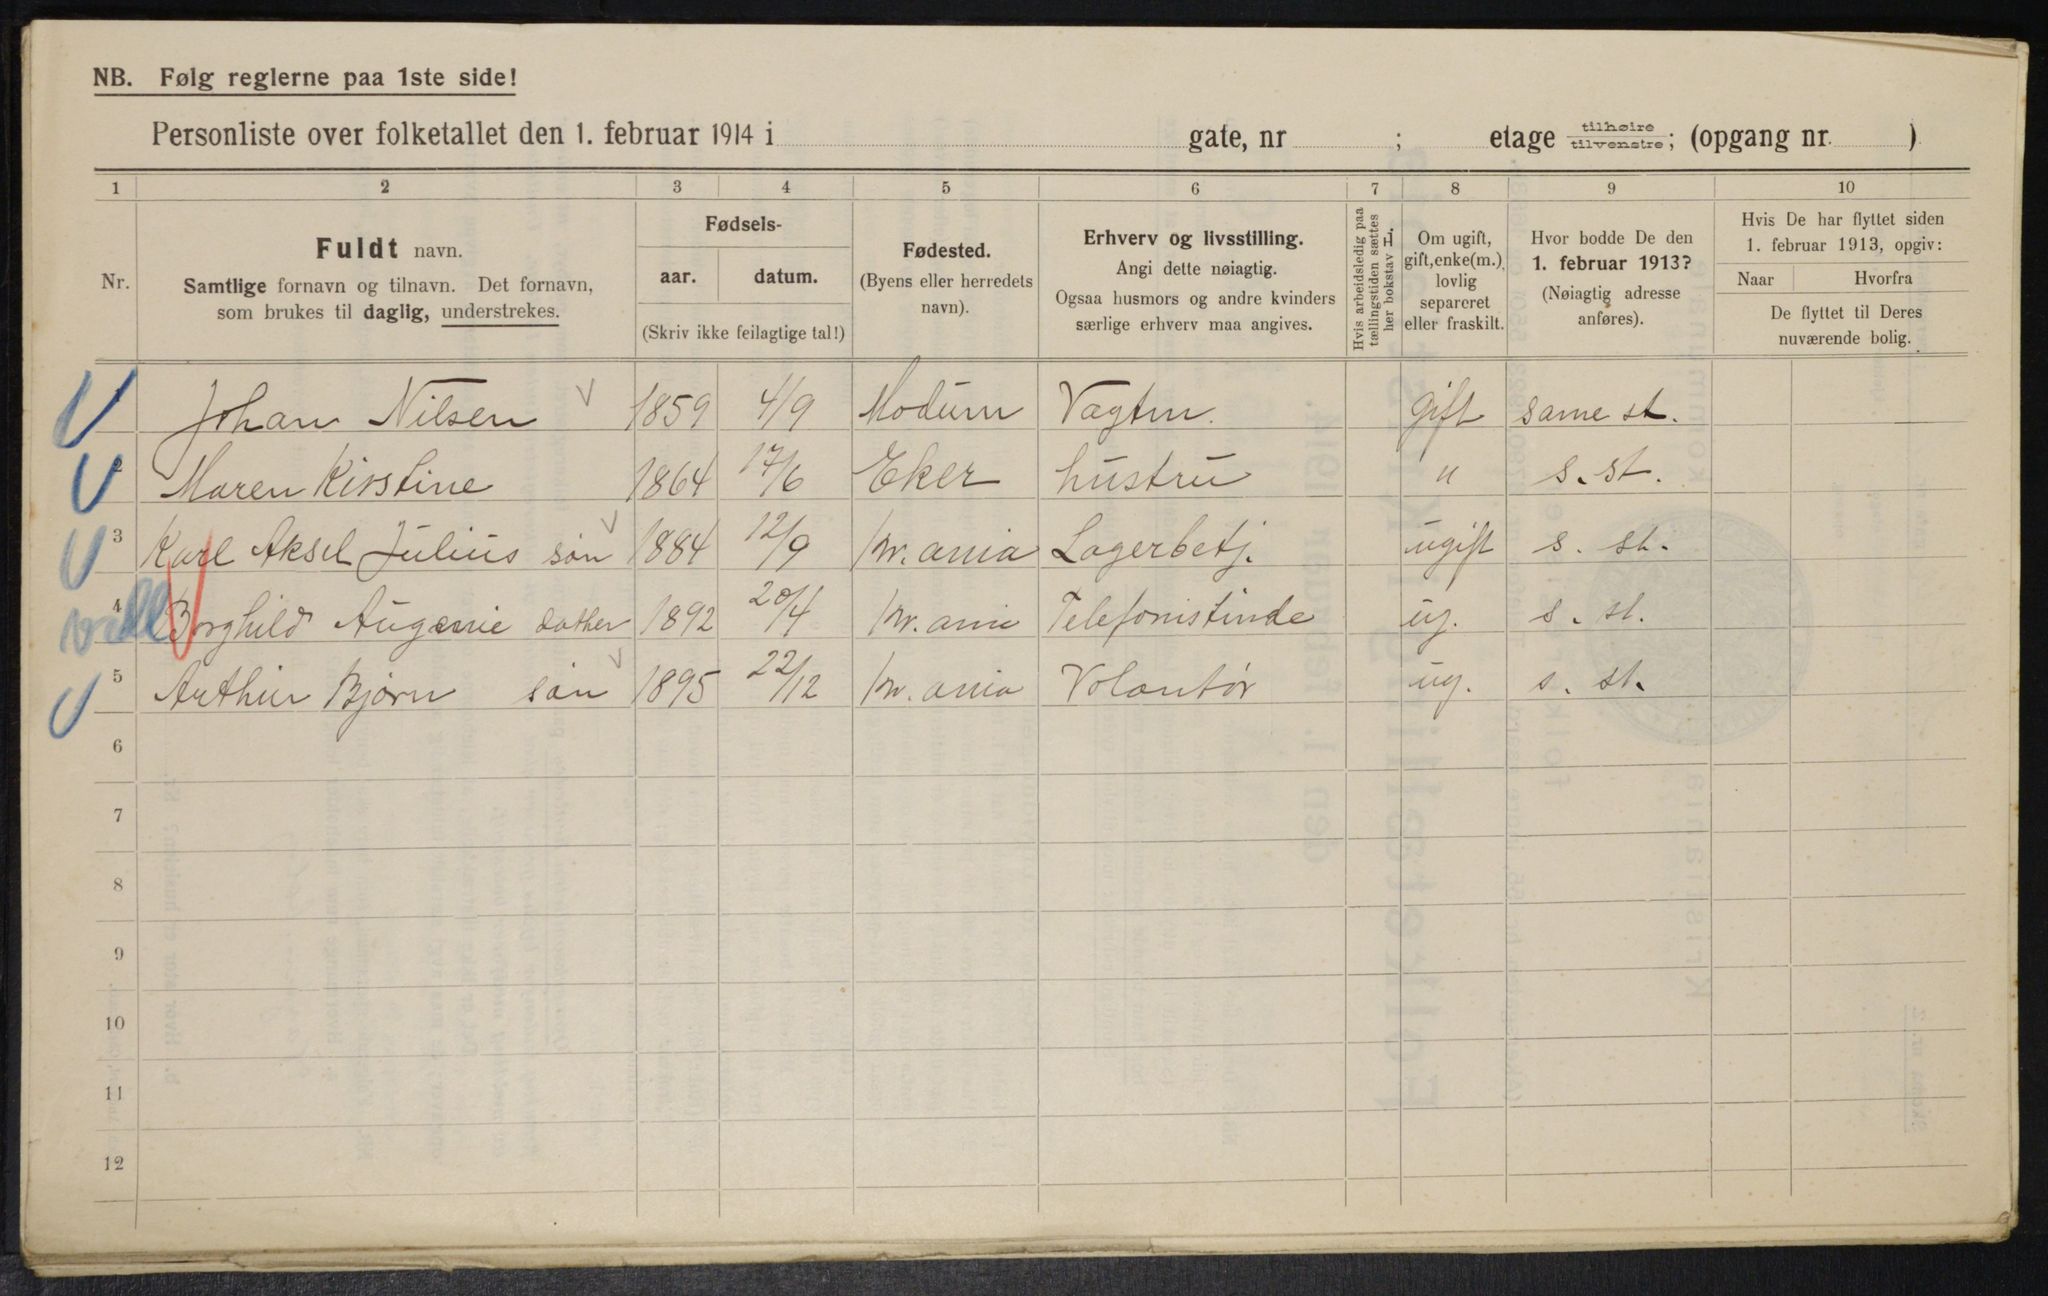 NB. Følg reglerne paa 1ste side!
Personliste over folketallet den 1. februar 1914 i gate, nr ; etage tilhøire tilvenstre; (opgang nr. )
1 2 3 4 5 6 7 8 9 10
Nr.
Fuldt navn.
Samtlige fornavn og tilnavn. Det fornavn,
som brukes til daglig, understrekes.
Fødsels-
aar. datum.
(Skriv ikke feilagtige tal!)
Fødested.
(Byens eller herredets
navn).
Erhverv og livsstilling.
Angi dette nøiagtig.
Ogsaa husmors og andre kvinders
særlige erhverv maa angives.
Hvis arbeidsledig paa
tællingstiden sættes
her bokstav L.
Om ugift,
gift, enke(m.),
lovlig
separeret
eller fraskilt.
Hvor bodde De den
1. februar 1913?
(Nøiagtig adresse
anføres).
Hvis De har flyttet siden
1. februar 1913, opgiv:
Naar Hvorfra
De flyttet til Deres
nuværende bolig.
Johan Nilsen 1859 4/9 Modum Vagtm. gift same st.
2 Maren Kirstine 1864 17/6 Eker hustru " s. st.
3 Karl Aksel Julius søn 1884 12/9 Kr.ania Lagerbetj. ugift s. st.
4 Borghild Augenie dather 1892 20/4 Kr.ania Telefonistinde ug. s. st.
5 Arthur Bjørn søn 1895 22/12 Kr.ania Volontør ug. s. st.
6
7
8
9
10
11
12